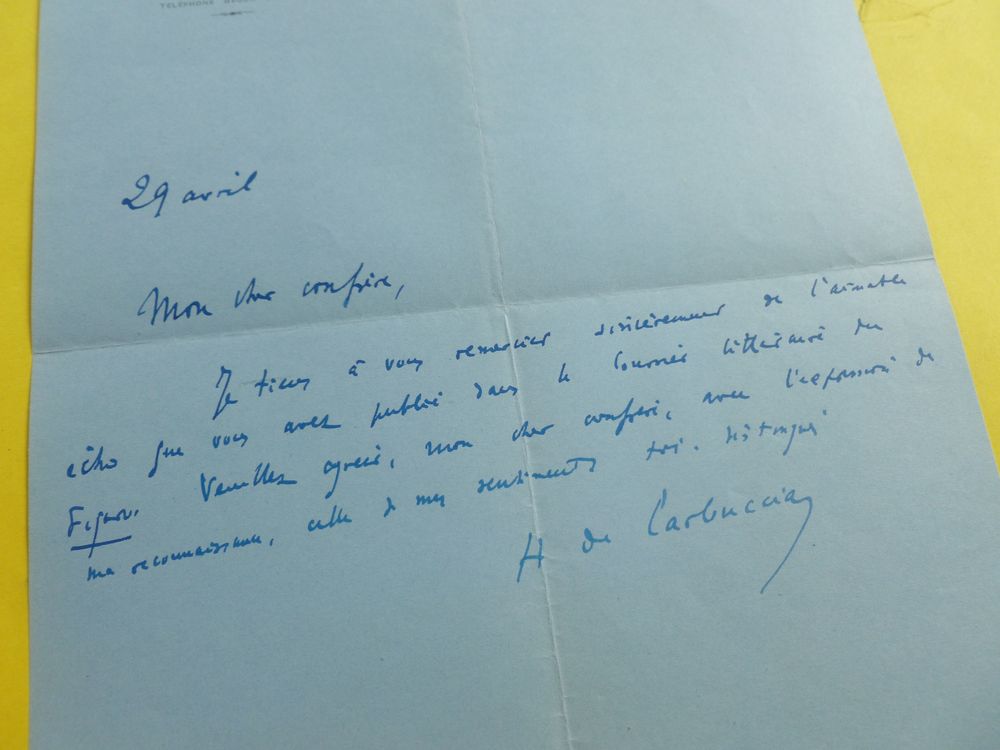 TÉLÉPHONE
29 avril
Mon cher confrère,
Je tiens à vous remercier sincèrement de l'aimable
écho que vous avez publié dans le Courrier littéraire du
Figaro. Veuillez agréer, mon cher confrère, avec l'expression de
ma reconnaissance, celle de mes sentiments très distingués
H de Carbuccia